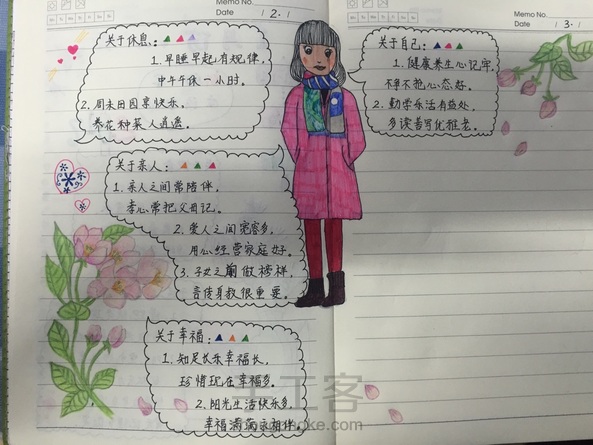 Memo No.
Date / 2. /
Memo No.
Date / 3. /
关于休息:
1. 早睡早起有规律,
中午午休一小时。
2. 周末田园享快乐,
养花种菜人逍遥。
关于亲人:
1. 亲人之间常陪伴,
孝心常把父母记。
2. 爱人之间宽容多,
用心经营家庭好。
3. 子女之前做榜样,
言传身教很重要。
关于幸福:
1. 知足长乐幸福长,
珍惜现在幸福多。
2. 阳光生活快乐多,
幸福满满永相伴。
关于自己:
1. 健康养生心记牢,
不争不抢心态好。
2. 勤学乐活有益处,
多读善写优雅老。